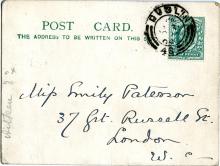 POST CARD.
THE ADDRESS TO BE WRITTEN ON THIS
DUBLIN
Miss Emily Paterson
37 Grt. Russell St.
London
W. C